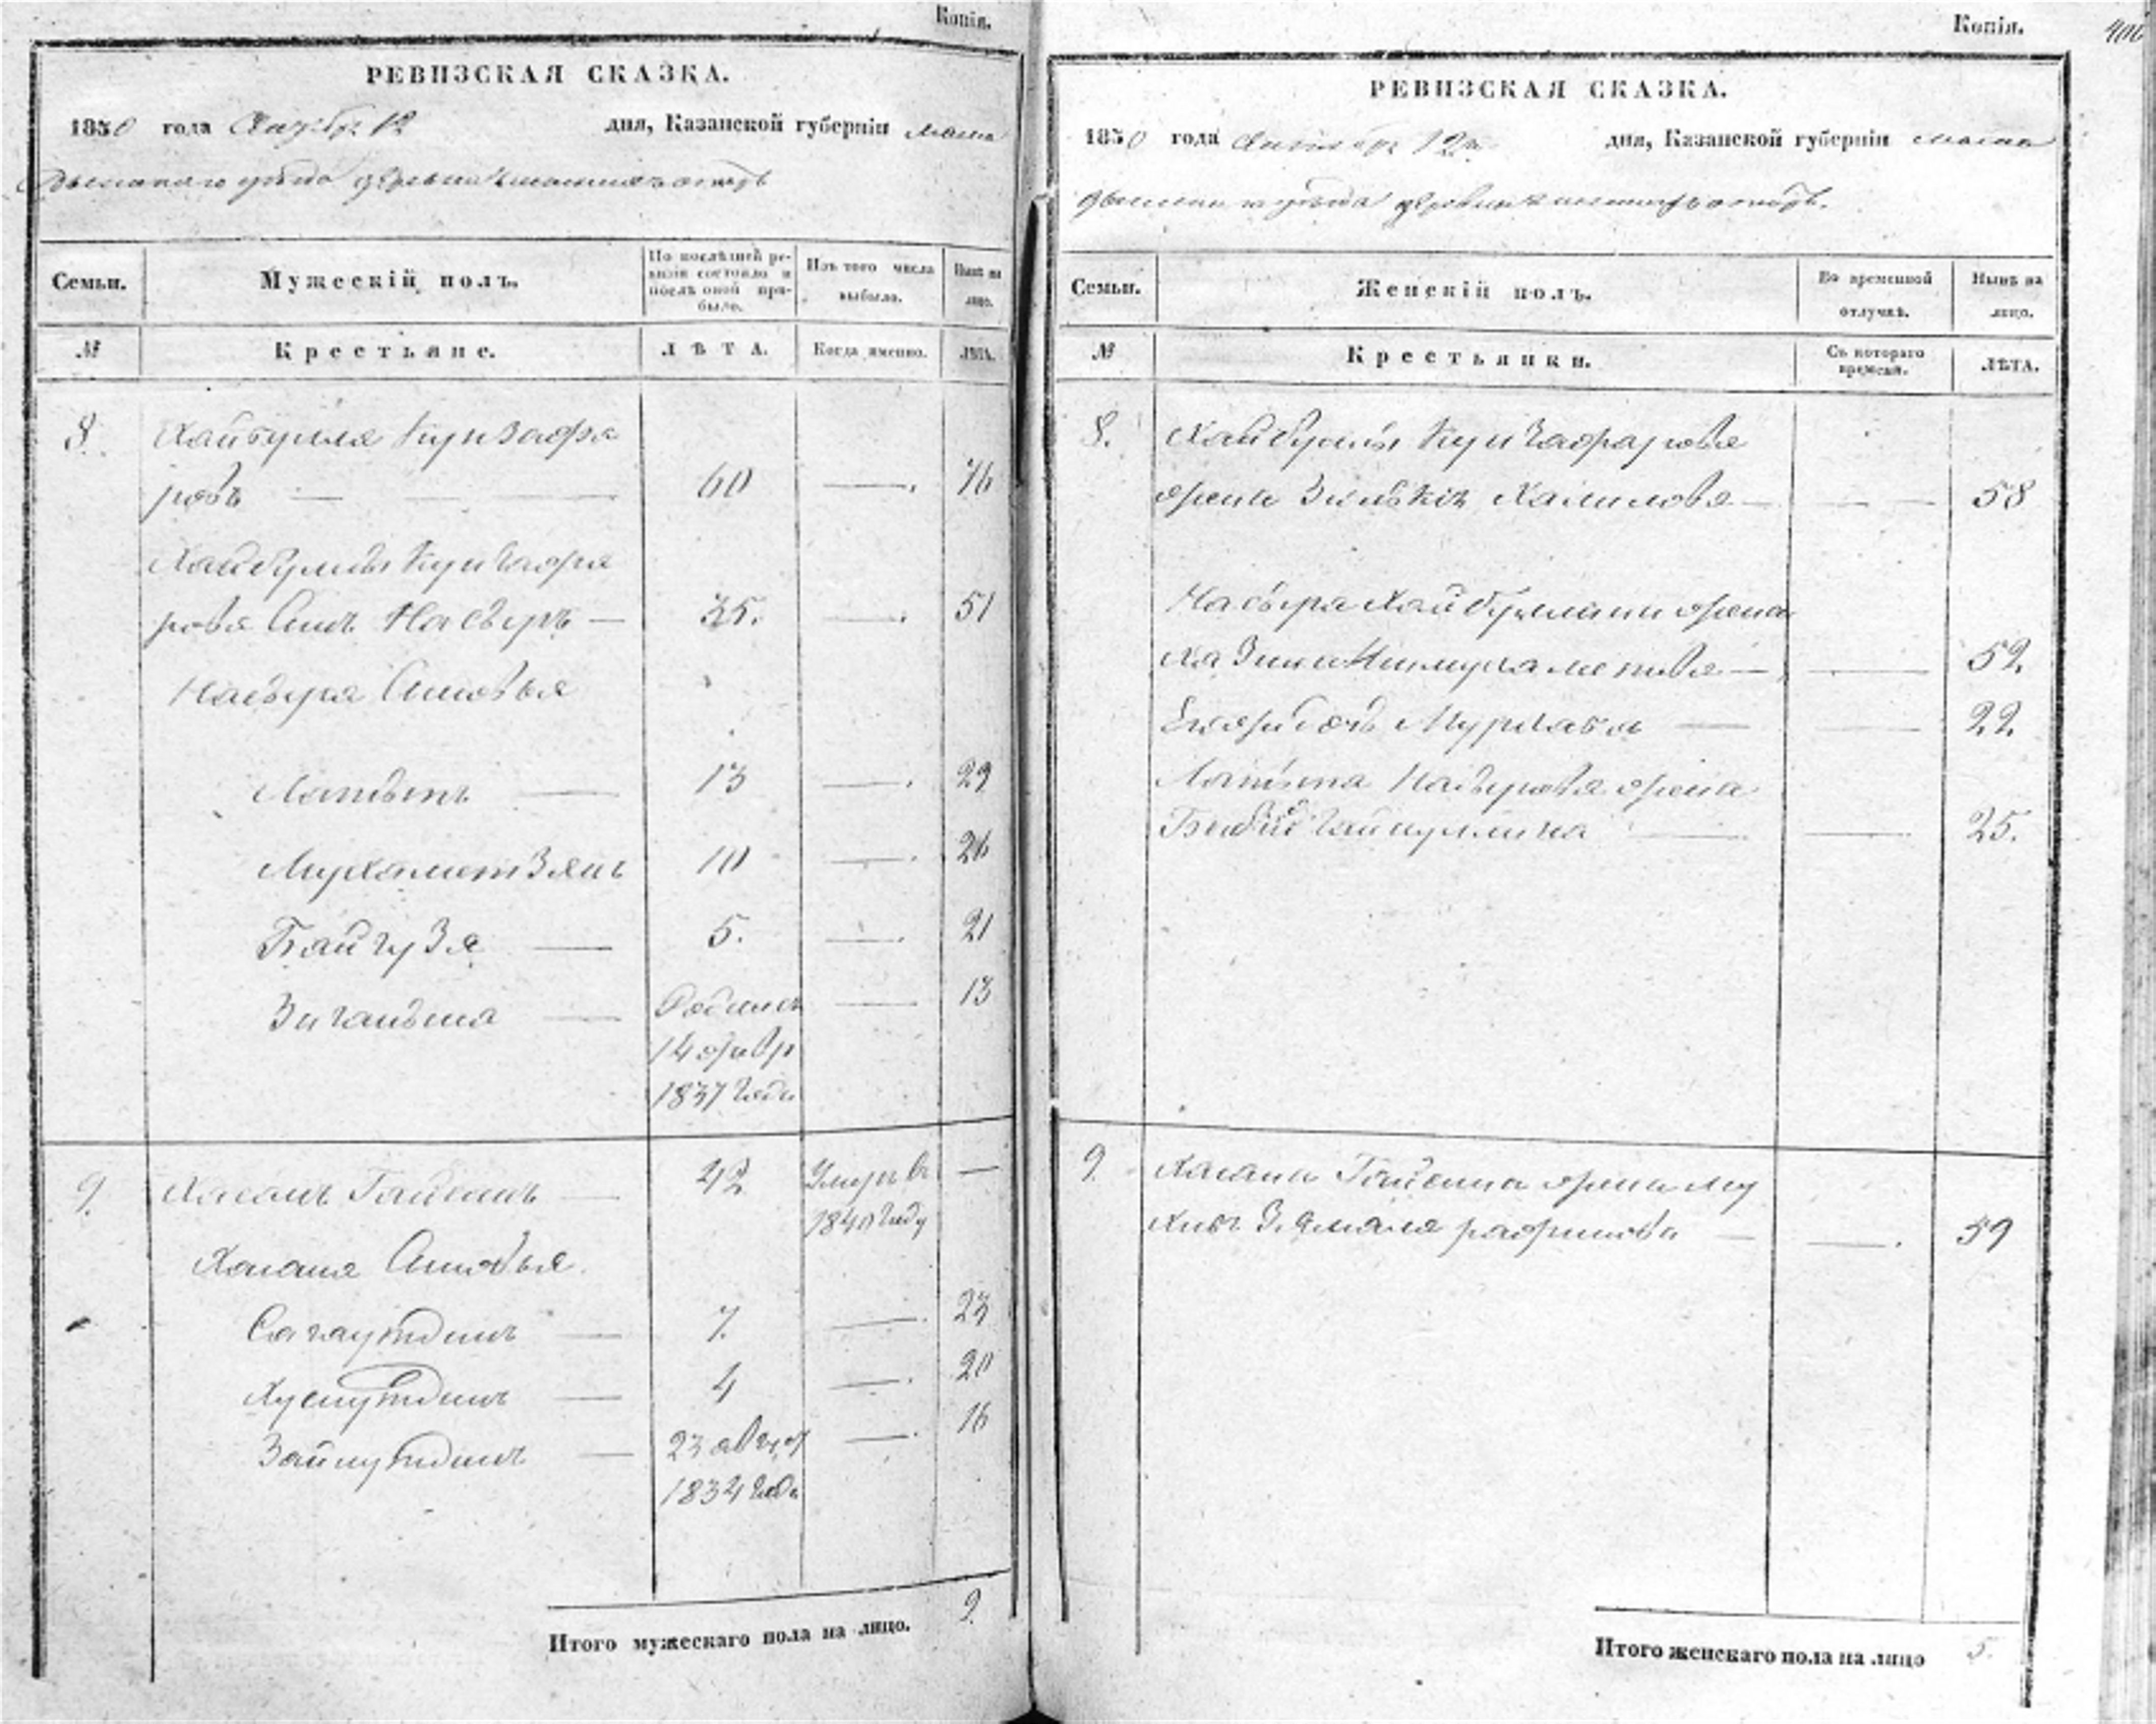 Копія.
РЕВИЗСКАЯ СКАЗКА.
1850 года Октябр 12 дня, Казанской губерніи Мама
дышскаго уѣзда деревни
Семьи.
Мужескій полъ.
По послѣдней ре-
визіи состояло и
послѣ оной при-
было.
Изъ того числа
выбыло.
Нынѣ на
лицо.
№
Крестьяне.
ЛѢТА.
Когда именно.
ЛѢТА.
8. Хайбулла Кунзафа
ровъ — 60 — 76
Хайбуллы Кунгафа
рова Сынъ Насыръ — 35. — 51
Насыра Сыновья
Латыпъ — 13 — 29
Мухаметзянъ 10 — 26
Байгузя — 5. — 21
Зиганьша — Родился — 13
14 февр
1837 года
9. Хасанъ — 42 Умръ въ —
1840 году
Хасана Сыновья.
Сагаутдинъ — 7. — 23
Хуснутдинъ — 4 — 20
Зайнутдинъ — 23 авгус — 16
1834 года
Итого мужескаго пола на лицо. 9.
Копія.
406
РЕВИЗСКАЯ СКАЗКА.
1850 года Октябр 12 дня, Казанской губерніи Мама
дышскаго уѣзда деревни
Семьи.
Женскій полъ.
Во временной
отлучкѣ.
Нынѣ на
лицо.
№
Крестьянки.
Съ котораго
времени.
ЛѢТА.
8. Хайбуллы Кунгафарова
жена Халилова — — 58
Насыра Хайбуллина жена
— — 52.
дочь — — 22.
Латыпа Насырова жена
Биби — — 25.
9. Хасана жена Му
— — 59
Итого женскаго пола на лицо 5.